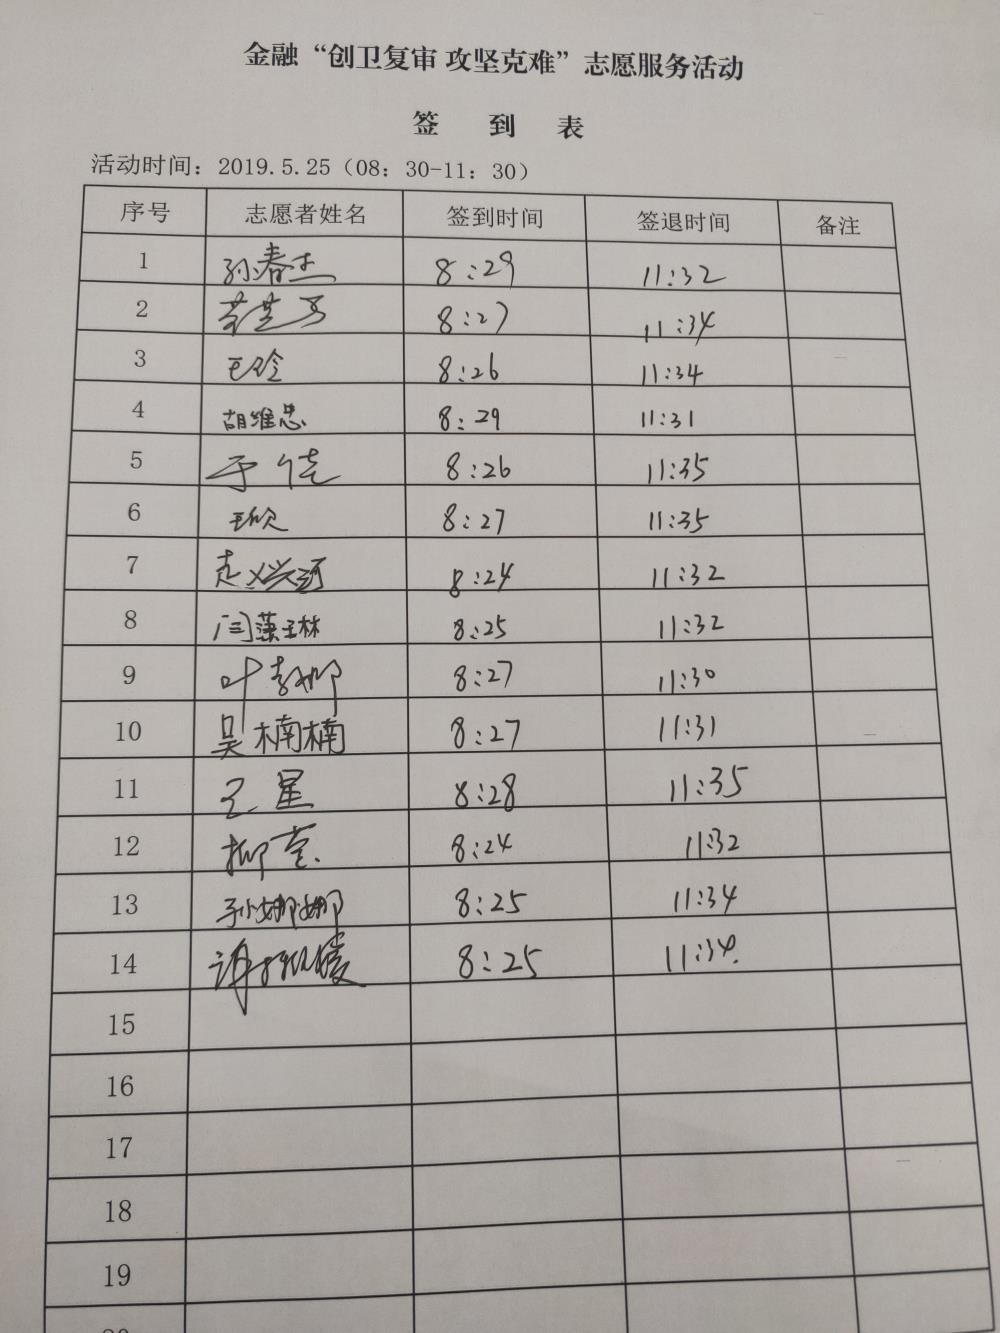 金融“创卫复审 攻坚克难”志愿服务活动
签 到 表
活动时间：2019.5.25（08：30-11：30）
序号 志愿者姓名 签到时间 签退时间 备注
1 孙春杰 8:29 11:32
2 8:27 11:34
3 王玲 8:26 11:34
4 胡维忠 8:29 11:31
5 于 8:26 11:35
6 王欣 8:27 11:35
7 8:24 11:32
8 闫藻琳 8:25 11:32
9 叶 8:27 11:30
10 吴楠楠 8:27 11:31
11 王星 8:28 11:35
12 柳莹 8:24 11:32
13 孙娜娜 8:25 11:34
14 8:25 11:34.
15
16
17
18
19